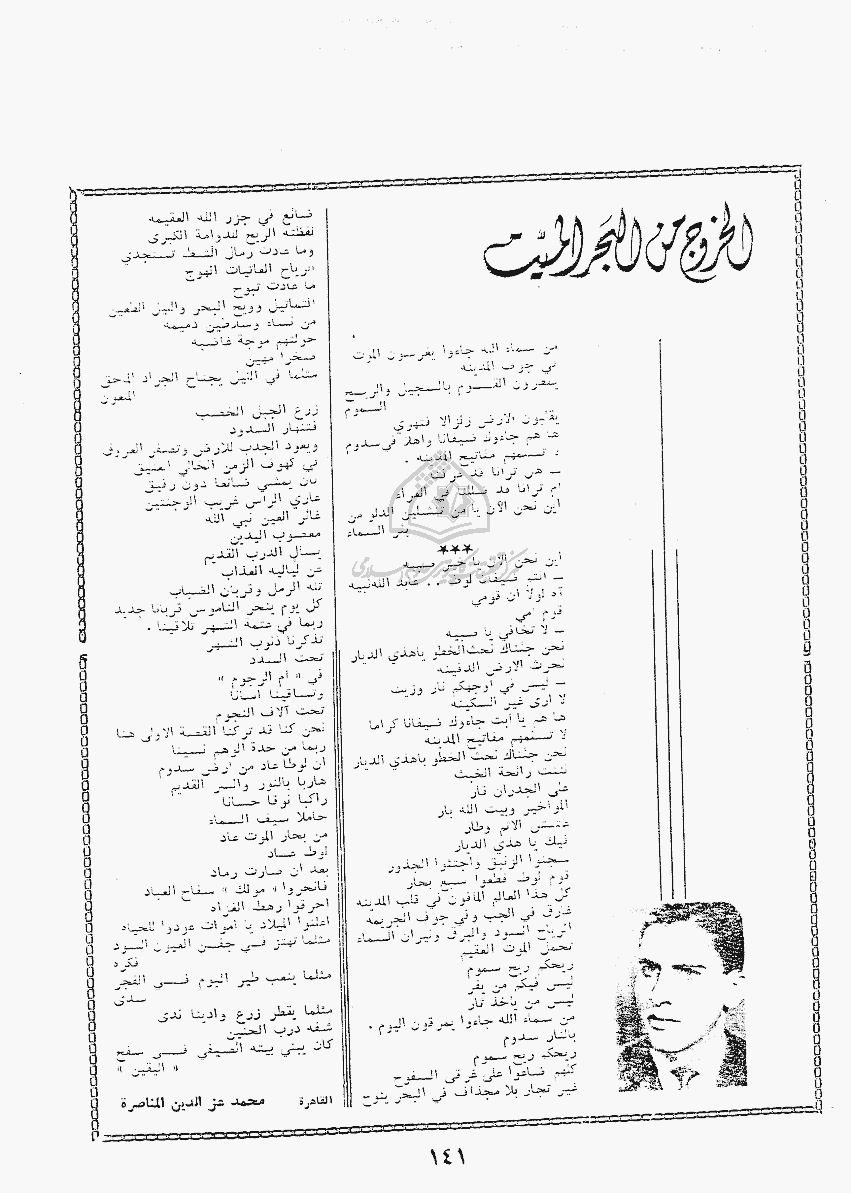 الخروج من البحر الميت
من سماء الله جاءوا يغرسون الموت
في جوف المدينه
يمطرون القوم بالسجيل والريح
السموم
يقلبون الارض زلزالا فتهوي
ها هم جاءوك ضيفانا واهلا في سدوم
لا تسلمهم مفاتيح المدينه .
ـ هل ترانا قد غرقنا
ام ترانا قد ضللنا في العراء
اين نحن الآن يا من تنشلين الدلو من
بئر السماء
***
اين نحن الآن يا خير صبيه
ـ انتم ضيفان لوط .. عبد الله نبيه
آه لولا ان قومي
قوم امي
ـ لا تخافي يا صبيه
نحن جئناك نحث الخطو يا هذي الديار
نحرث الارض الدفينه
ـ ليس في اوجهكم نار وزيت
لا ارى غير السكينه
ها هم يا أبت جاءوك ضيفانا كراما
لا تسلمهم مفاتيح المدينه
نحن جئناك نحث الخطو يا هذي الديار
نتنت رائحة الخبث
على الجدران نار
المواخير وبيت الله بار
عشش الاثم وطار
فيك يا هذي الديار
سجنوا الزنبق واجتثوا الجذور
قوم لوط قطعوا سبع بحار
كل هذا العالم المأفون في قلب المدينه
غارق في الجب وفي جوف الجريمه
الرياح السود والبرق ونيران السماء
تحمل الموت العقيم
ريحكم ريح سموم
ليس فيكم من يفر
ليس من يأخذ ثار
من سماء الله جاءوا يمرقون اليوم .
بالنار سدوم
ريحكم ريح سموم
كلهم ضاعوا على غرقى السفوح
غير تجار بلا مجذاف في البحر ينوح
ضائع في جزر الله العقيمه
لفظته الريح للدوامة الكبرى
وما عادت رمال الشط تستجدي
الرياح العاتيات الهوج
ما عادت تبوح
التماثيل وريح البحر والليل اللعين
من نساء وسلاطين دميمه
حولتهم موجة غاضبه
صخرا مهين
مثلما في الليل يجتاح الجراد المحق
الملعون
زرع الجبل الخصب
فتنهار السدود
ويعود الجدب للارض وتصفر العروق
في كهوف الزمن الخالي العتيق
كان يمشي ضائعا دون رفيق
عاري الراس غريب الوجنتين
غائر العين نبي الله
معصوب اليدين
يسأل الدرب القديم
عن لياليه العذاب
تله الرمل وقربان الضباب
كل يوم ينحر الناموس قربانا جديد
ربما في عتمة الشهر تلاقينا .
تذكرنا ذنوب الشهر
تحت السدد
في « ام الرجوم »
وتساقينا أسانا
تحت آلاف النجوم
نحن كنا قد تركنا القصة الاولى هنا
ربما من حدة الوهم نسينا
ان لوطا عاد من ارض سدوم
هاربا بالنور والسر القديم
راكبا نوقا حسانا
حاملا سيف السماء
من بحار الموت عاد
لوط عاد
بعد ان صارت رماد
فانحروا « مولك » سفاح العباد
احرقوا رهط الفزاد
اعلنوا الميلاد يا أموات عودوا للحياه
مثلما تهتز في جفن العيون السود
فكره
مثلما ينعب طير البوم في الفجر
سدى
مثلما يقطر زرع وادينا ندى
شفه درب الحنين
كان يبني بيته الصيفي في سفح
« اليقين »
القاهرة محمد عز الدين المناصرة
١٤١